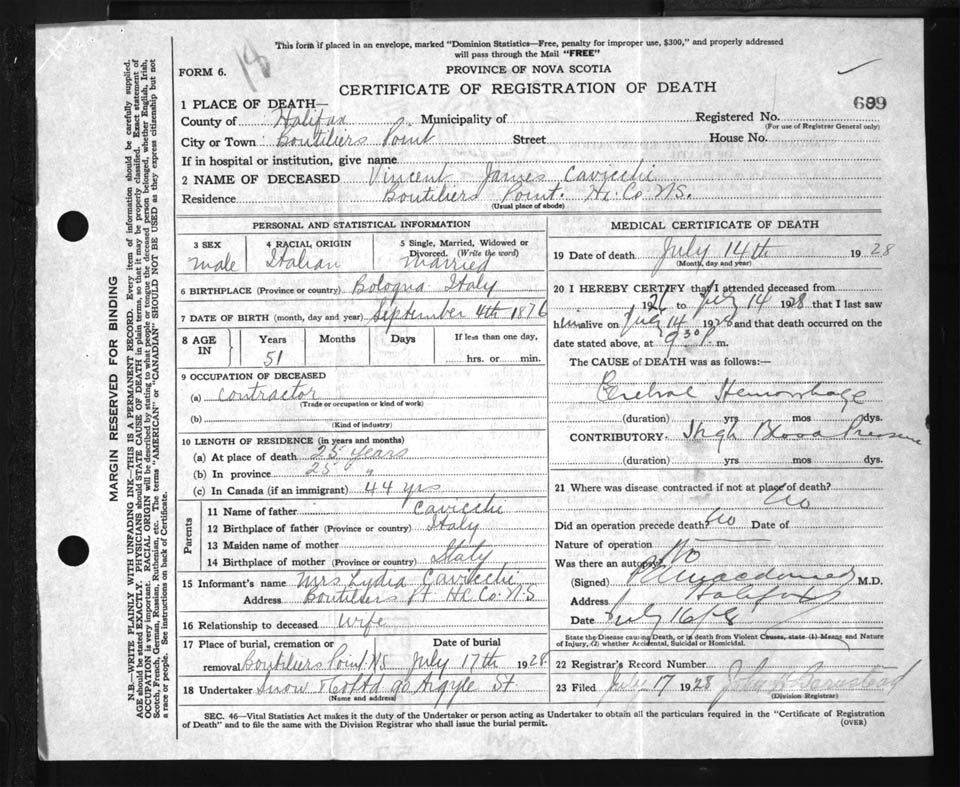 This form if placed in an envelope, marked "Dominion Statistics—Free, penalty for improper use, $300," and properly addressed
will pass through the Mail "FREE"
FORM 6.
PROVINCE OF NOVA SCOTIA
CERTIFICATE OF REGISTRATION OF DEATH
699
1 PLACE OF DEATH—
County of Halifax Municipality of Registered No.
(For use of Registrar General only)
City or Town Boutiliers Point Street House No.
If in hospital or institution, give name
2 NAME OF DECEASED Vincent James Cavicchi
Residence Boutiliers Point. Hx. Co. N.S.
(Usual place of abode)
PERSONAL AND STATISTICAL INFORMATION
3 SEX 4 RACIAL, ORIGIN 5 Single, Married, Widowed or Divorced. (Write the word)
male Italian Married
6 BIRTHPLACE (Province or country) Bologna Italy
7 DATE OF BIRTH (month, day and year) September 4th 1876
8 AGE IN Years Months Days If less than one day,
51 hrs. or min.
9 OCCUPATION OF DECEASED
(a) Contractor
(Trade or occupation or kind of work)
(b)
(Kind of industry)
10 LENGTH OF RESIDENCE (in years and months)
(a) At place of death 25 years
(b) In province 25 "
(c) In Canada (if an immigrant) 44 yrs
Parents
11 Name of father Cavicchi
12 Birthplace of father (Province or country) Italy
13 Maiden name of mother
14 Birthplace of mother (Province or country) Italy
15 Informant's name Mrs Lydia Cavicchi
Address Boutiliers Pt Hx. Co. N.S
16 Relationship to deceased Wife
17 Place of burial, cremation or removal Boutiliers Point. N.S. Date of burial July 17th 1928
18 Undertaker Snow & Co Ltd 90 Argyle St
(Name and address)
MEDICAL CERTIFICATE OF DEATH
19 Date of death July 14th 1928
(Month, day and year)
20 I HEREBY CERTIFY that I attended deceased from
1926 to July 14 1928 that I last saw
him alive on July 14 1928 and that death occurred on the
date stated above, at 9 30 P. m.
The CAUSE of DEATH was as follows:—
Cerebral Hemorrhage
(duration) yrs mos dys.
CONTRIBUTORY. High Blood Pressure
(duration) yrs. mos. dys.
21 Where was disease contracted if not at place of death?
No
Did an operation precede death? No Date of
Nature of operation
Was there an autopsy? No
(Signed) Macdonald M.D.
Address Halifax
Date July 16/28
State the Disease causing Death, or in death from Violent Causes, state (1) Means and Nature
of Injury, (2) whether Accidental, Suicidal or Homicidal.
22 Registrar's Record Number
23 Filed July 17 1928 John
(Division Registrar)
SEC. 46—Vital Statistics Act makes it the duty of the Undertaker or person acting as Undertaker to obtain all the particulars required in the "Certificate of Registration
of Death" and to file the same with the Division Registrar who shall issue the burial permit.
(OVER)
MARGIN RESERVED FOR BINDING
N.B.—WRITE PLAINLY WITH UNFADING INK—THIS IS A PERMANENT RECORD. Every item of information should be carefully supplied.
AGE should be stated EXACTLY. PHYSICIANS should STATE CAUSE OF DEATH in plain terms, so that it may be properly classified. Exact statement of
OCCUPATION is very important. RACIAL ORIGIN will be described by stating to what people or tongue the deceased person belonged, whether English, Irish,
Scotch, French, German, Russian, Ruthenian, etc. The terms "AMERICAN" or "CANADIAN" SHOULD NOT BE USED as they express citizenship but not
a race or people. See instructions on back of Certificate.